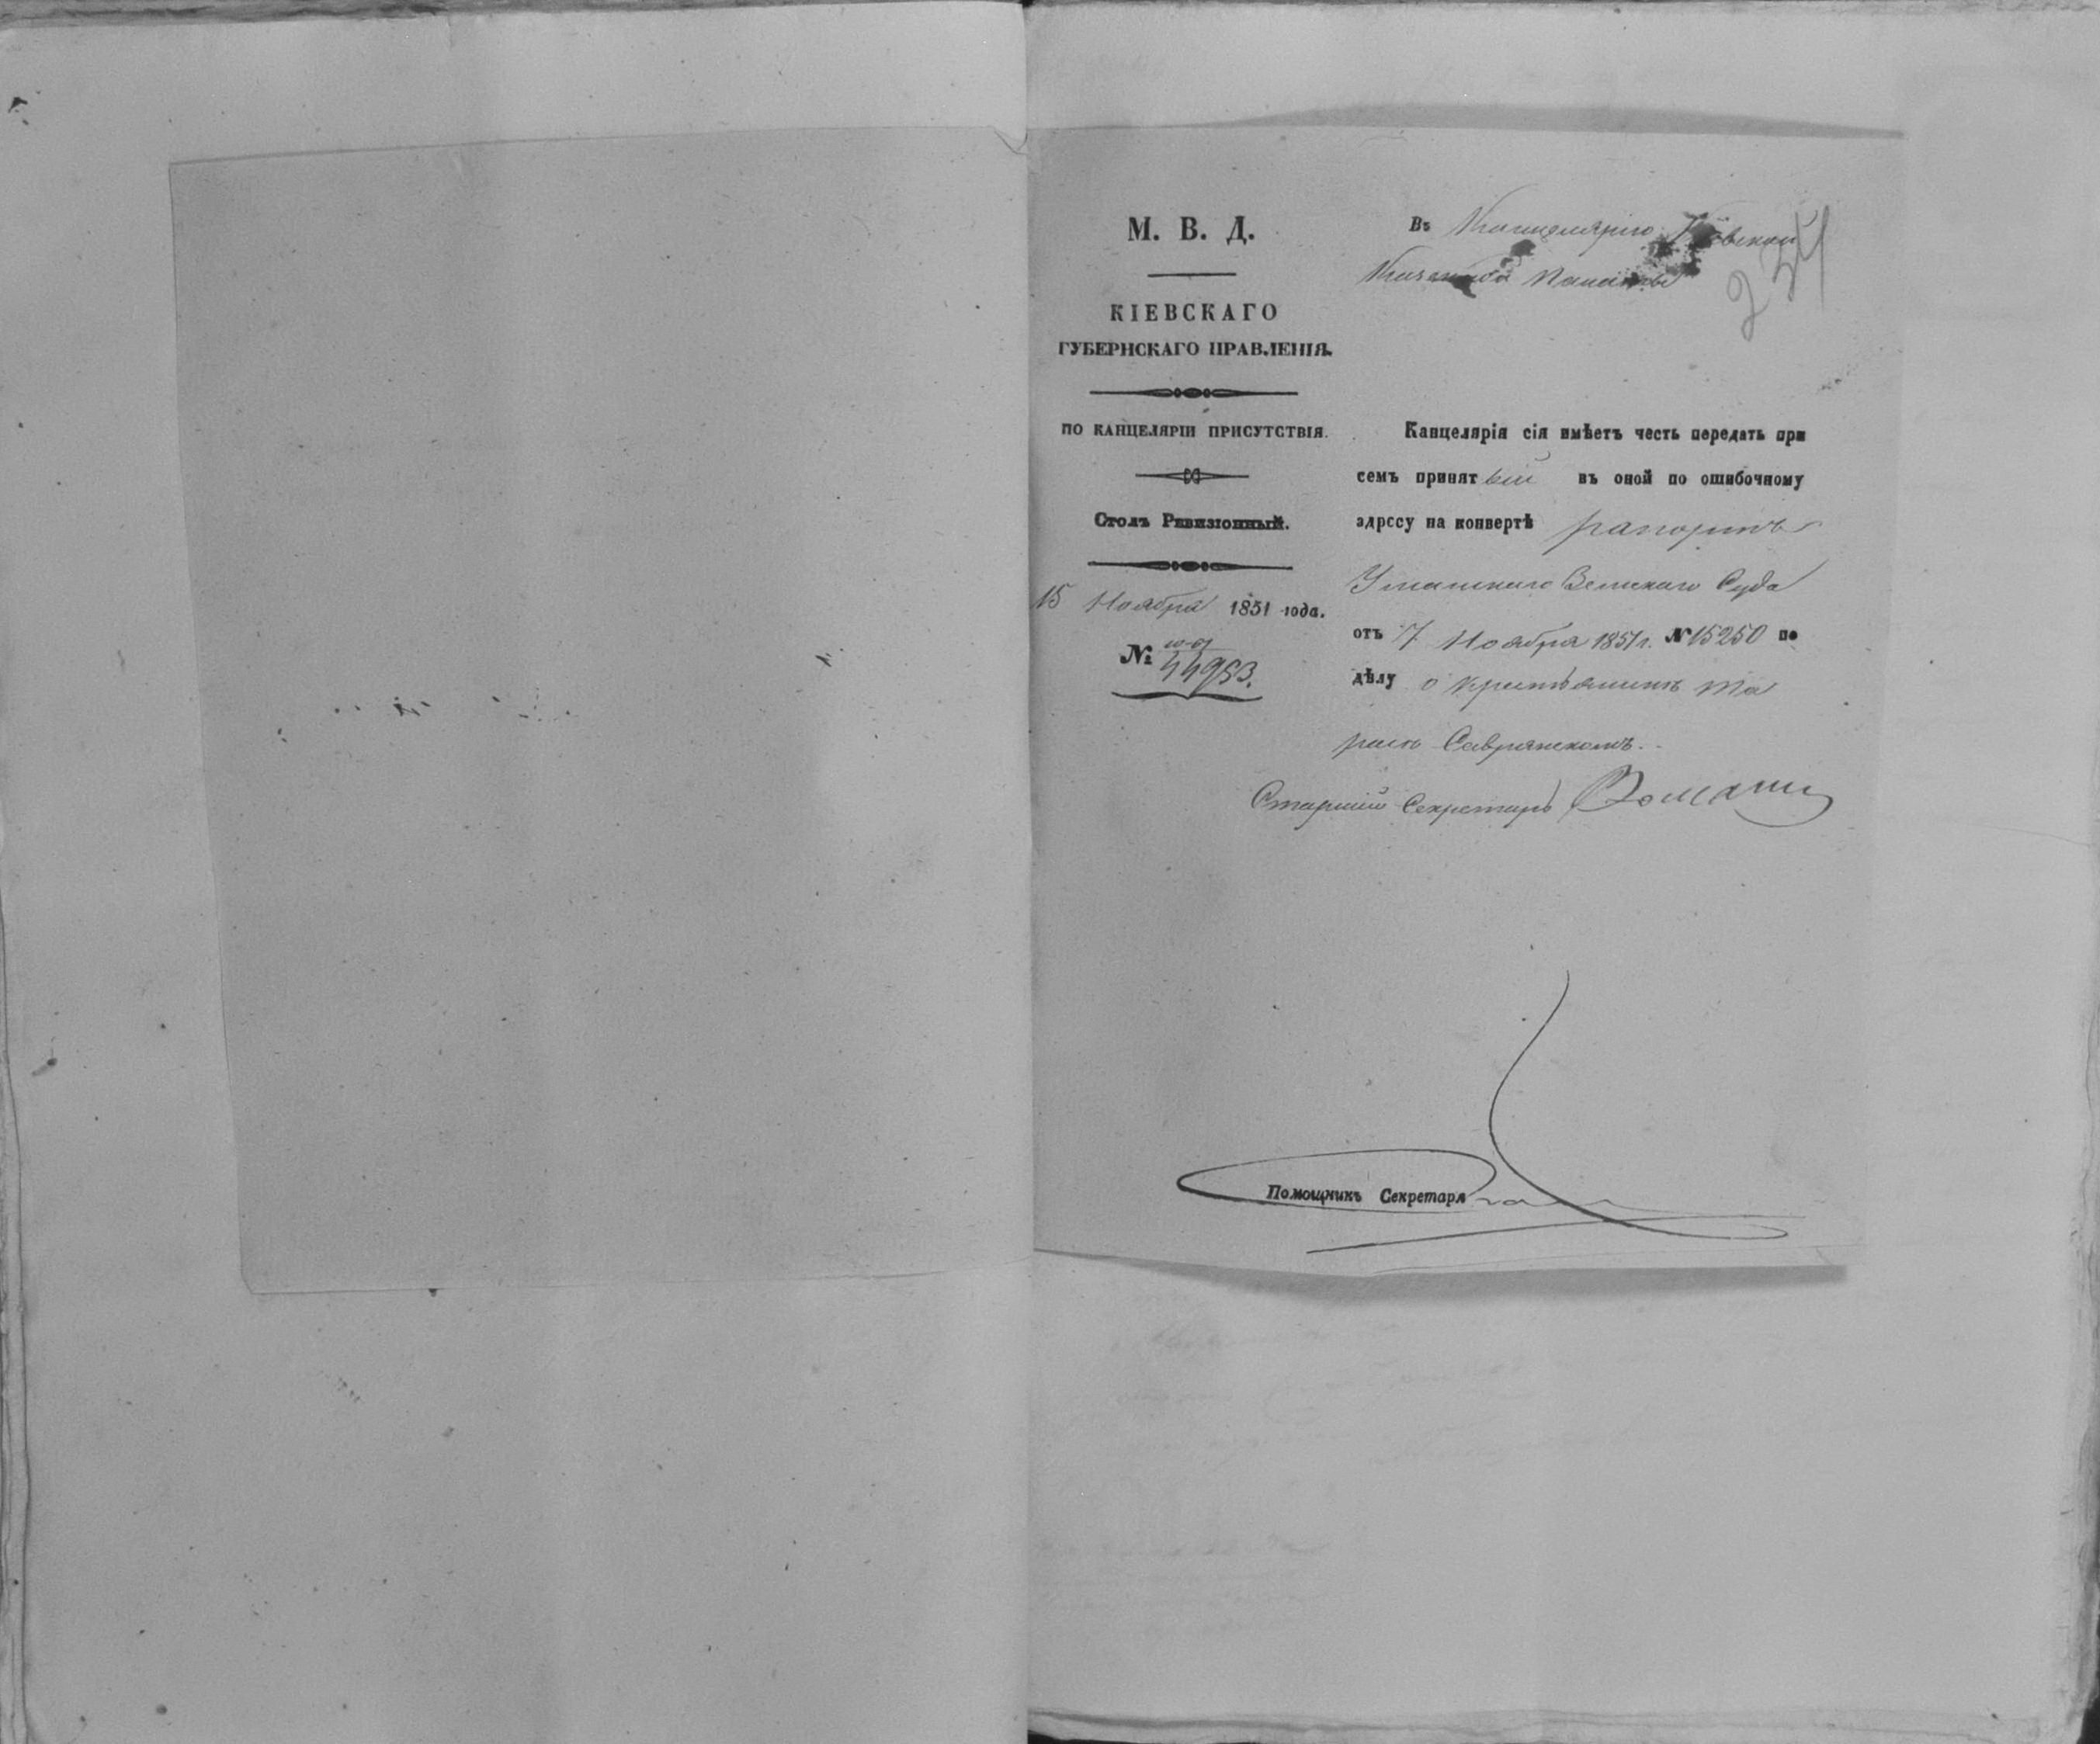 М. В. Д.
КІЕВСКАГО
ГУБЕРНСКАГО ПРАВЛЕНІЯ.
ПО КАНЦЕЛЯРІИ ПРИСУТСТВІЯ.
Столъ Ревизіонный.
15 Ноября 1851 года.
№ 44953.
234
Въ Канцелярію Кіевской
Казенной Палаты
Канцелярія сія имѣетъ честь передать при
семъ принятый въ оной по ошибочному
адрссу на конвертѣ рапортъ
Уманскаго Земскаго Суда
отъ 7 Ноября 1851 г. № 15250 по
дѣлу о крестьянинѣ Та
расѣ Савранскомъ.
Старшій Секретарь
Помощникъ Секретаря